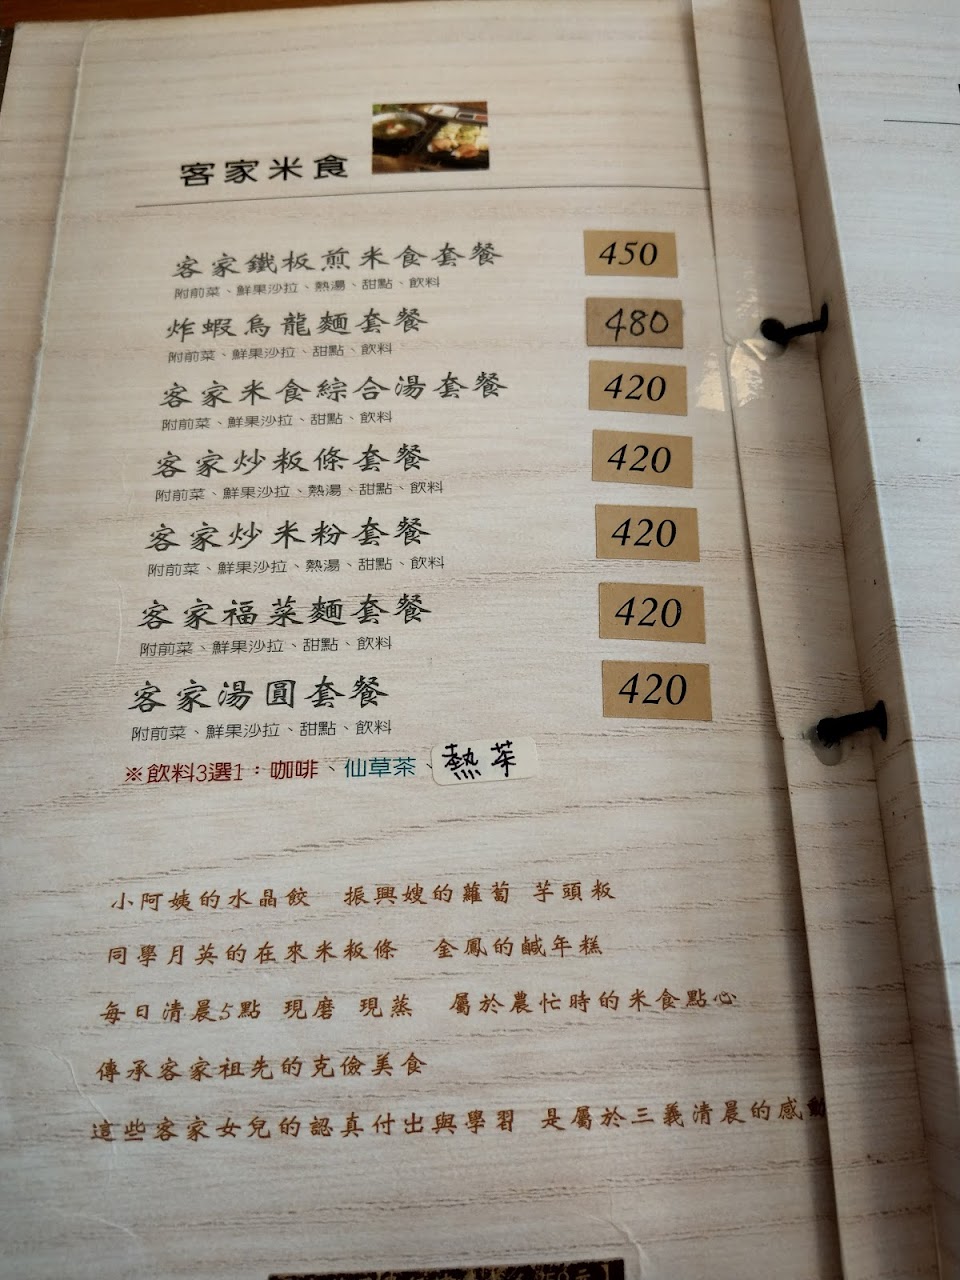 客家米食
客家鐵板煎米食套餐 450
附前菜、鮮果沙拉、熱湯、甜點、飲料
炸蝦烏龍麵套餐 480
附前菜、鮮果沙拉、甜點、飲料
客家米食綜合湯套餐 420
附前菜、鮮果沙拉、甜點、飲料
客家炒粄條套餐 420
附前菜、鮮果沙拉、熱湯、甜點、飲料
客家炒米粉套餐 420
附前菜、鮮果沙拉、熱湯、甜點、飲料
客家福菜麵套餐 420
附前菜、鮮果沙拉、甜點、飲料
客家湯圓套餐 420
附前菜、鮮果沙拉、甜點、飲料
※飲料3選1：咖啡、仙草茶、熱茶
小阿姨的水晶餃 振興嫂的蘿蔔 芋頭粄
同學月英的在來米粄條 金鳳的鹹年糕
每日清晨5點 現磨 現蒸 屬於農忙時的米食點心
傳承客家祖先的克儉美食
這些客家女兒的認真付出與學習 是屬於三義清晨的感動